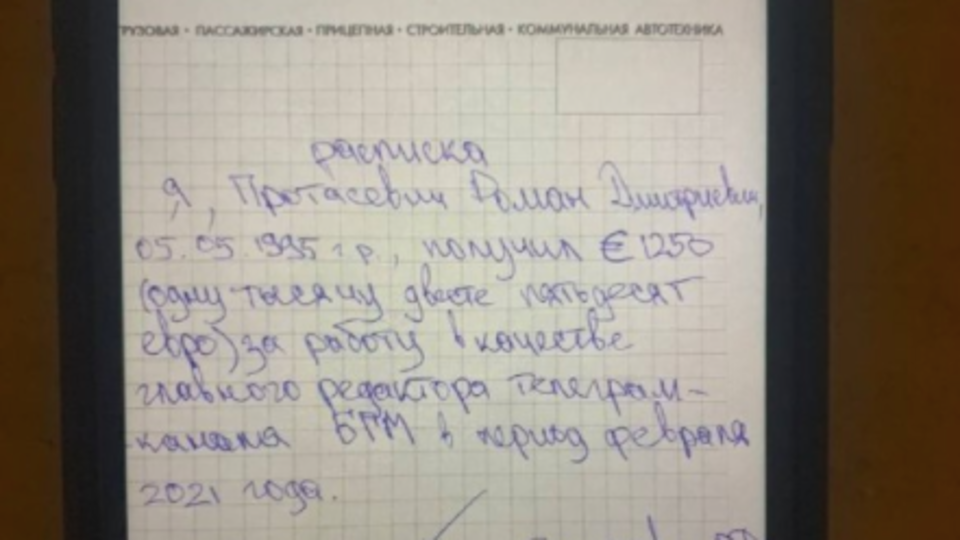 РУЗОВАЯ • ПАССАЖИРСКАЯ • ПРИЦЕПНАЯ • СТРОИТЕЛЬНАЯ • КОММУНАЛЬНАЯ АВТОТЕХНИКА
расписка
Я, Протасевич Роман Дмитриевич,
05.05.1995 г.р., получил €1250
(одну тысячу двести пятьдесят
евро) за работу в качестве
главного редактора телеграм-
канала БГМ в период февраля
2021 года.